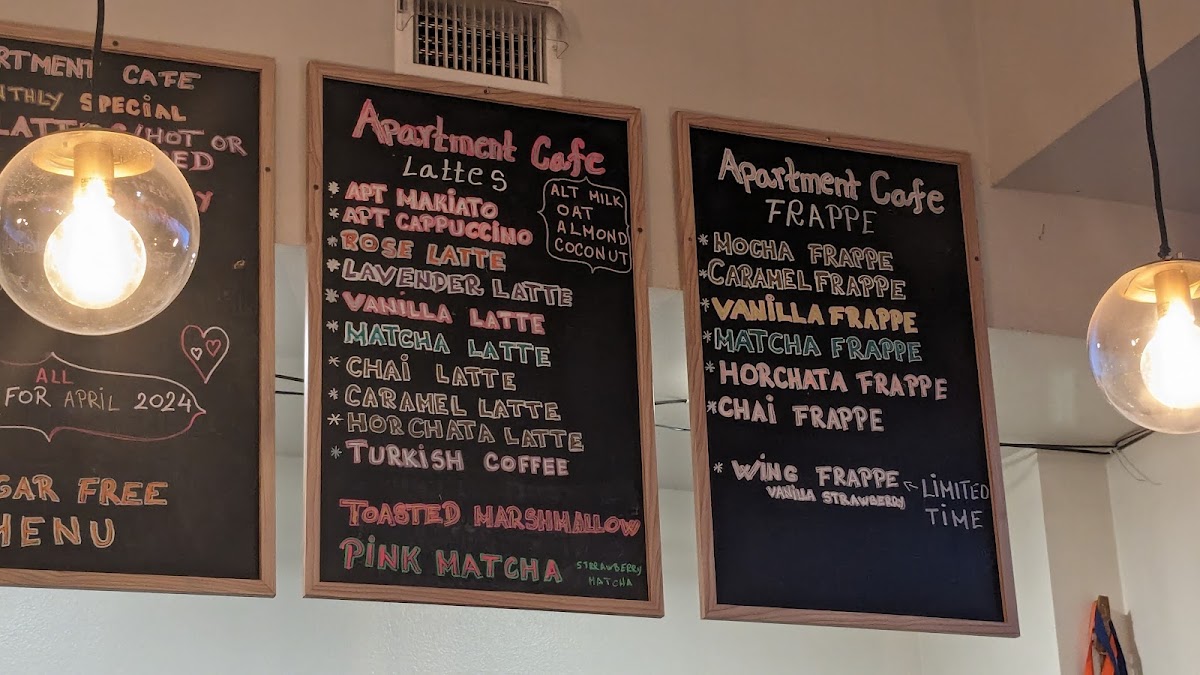 CAFE
SPECIAL
HOT OR
ALL
FOR APRIL 2024
FREE
MENU
Apartment Cafe
Lattes
* APT MAKIATO
* APT CAPPUCCINO
* ROSE LATTE
* LAVENDER LATTE
* VANILLA LATTE
* MATCHA LATTE
* CHAI LATTE
* CARAMEL LATTE
* HORCHATA LATTE
* TURKISH COFFEE
TOASTED MARSHMALLOW
PINK MATCHA
STRRAWBERRY
MATCHA
ALT MILK
OAT
ALMOND
COCONUT
Apartment Cafe
FRAPPE
* MOCHA FRAPPE
* CARAMEL FRAPPE
* VANILLA FRAPPE
* MATCHA FRAPPE
* HORCHATA FRAPPE
* CHAI FRAPPE
* WING FRAPPE
VANILLA STRAWBERRY
LIMITED
TIME